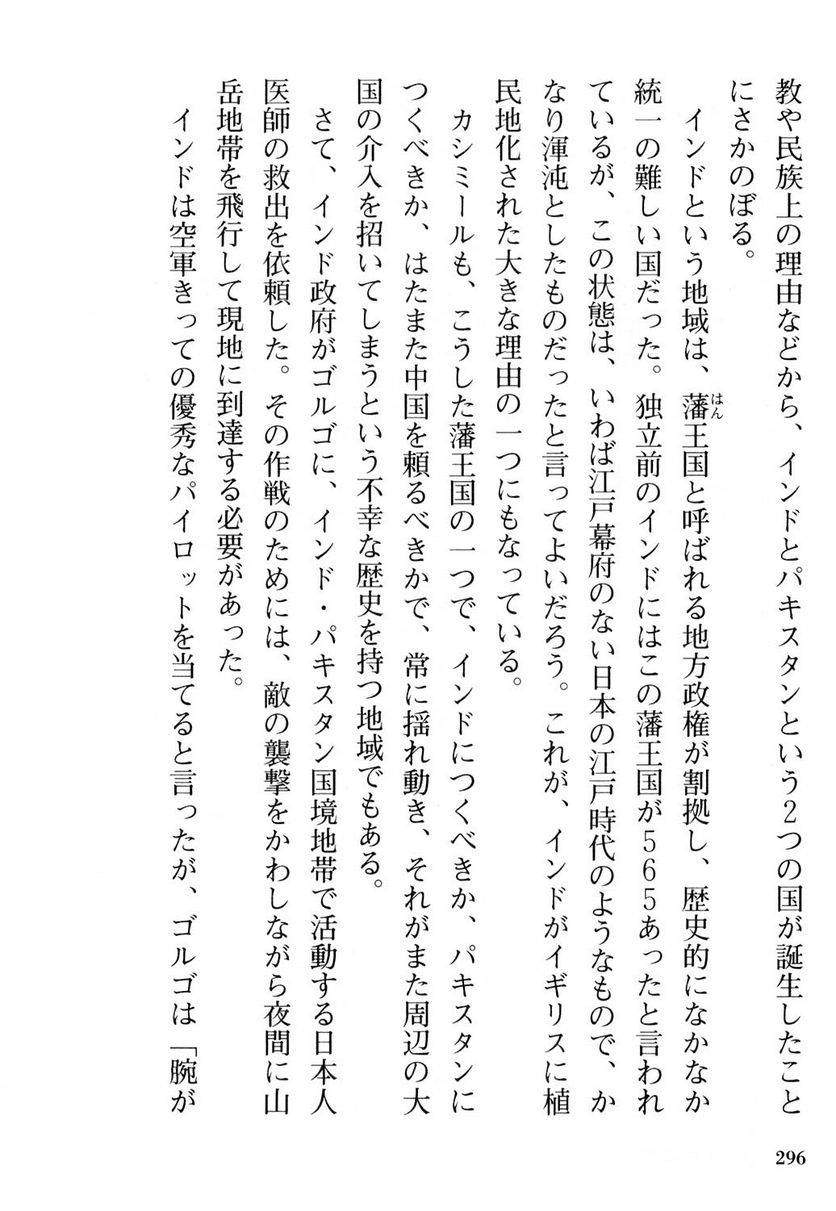 教や民族上の理由などから、インドとパキスタンという2つの国が誕生したこと
にさかのぼる。
インドという地域は、藩王国と呼ばれる地方政権が割拠し、歴史的になかなか
はん
統一の難しい国だった。独立前のインドにはこの藩王国が565あったと言われ
ているが、この状態は、いわば江戸幕府のない日本の江戸時代のようなもので、か
なり渾沌としたものだったと言ってよいだろう。これが、インドがイギリスに植
民地化された大きな理由の一つにもなっている。
カシミールも、こうした藩王国の一つで、インドにつくべきか、パキスタンに
つくべきか、はたまた中国を頼るべきかで、常に揺れ動き、それがまた周辺の大
国の介入を招いてしまうという不幸な歴史を持つ地域でもある。
さて、インド政府がゴルゴに、インド・パキスタン国境地帯で活動する日本人
医師の救出を依頼した。その作戦のためには、敵の襲撃をかわしながら夜間に山
岳地帯を飛行して現地に到達する必要があった。
インドは空軍きっての優秀なパイロットを当てると言ったが、ゴルゴは「腕が
296